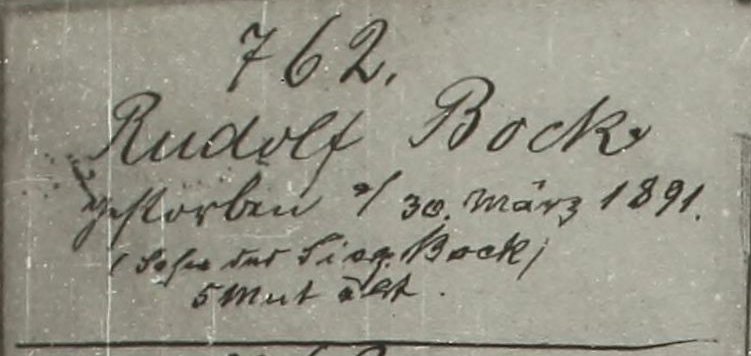 762.
Rudolf Bock
gestorben a/ 30. März 1891.
(Sohn des Bock)
5 Mnt alt.